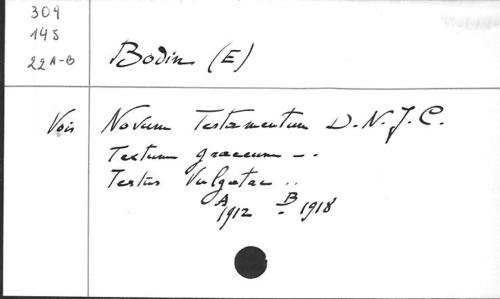 309
145
22 A-B
Bodin (E)
Vois Novum Testamentum D.N.J.C.
Textum graecum - .
Textus Vulgatae ..
A 1912 B 1918